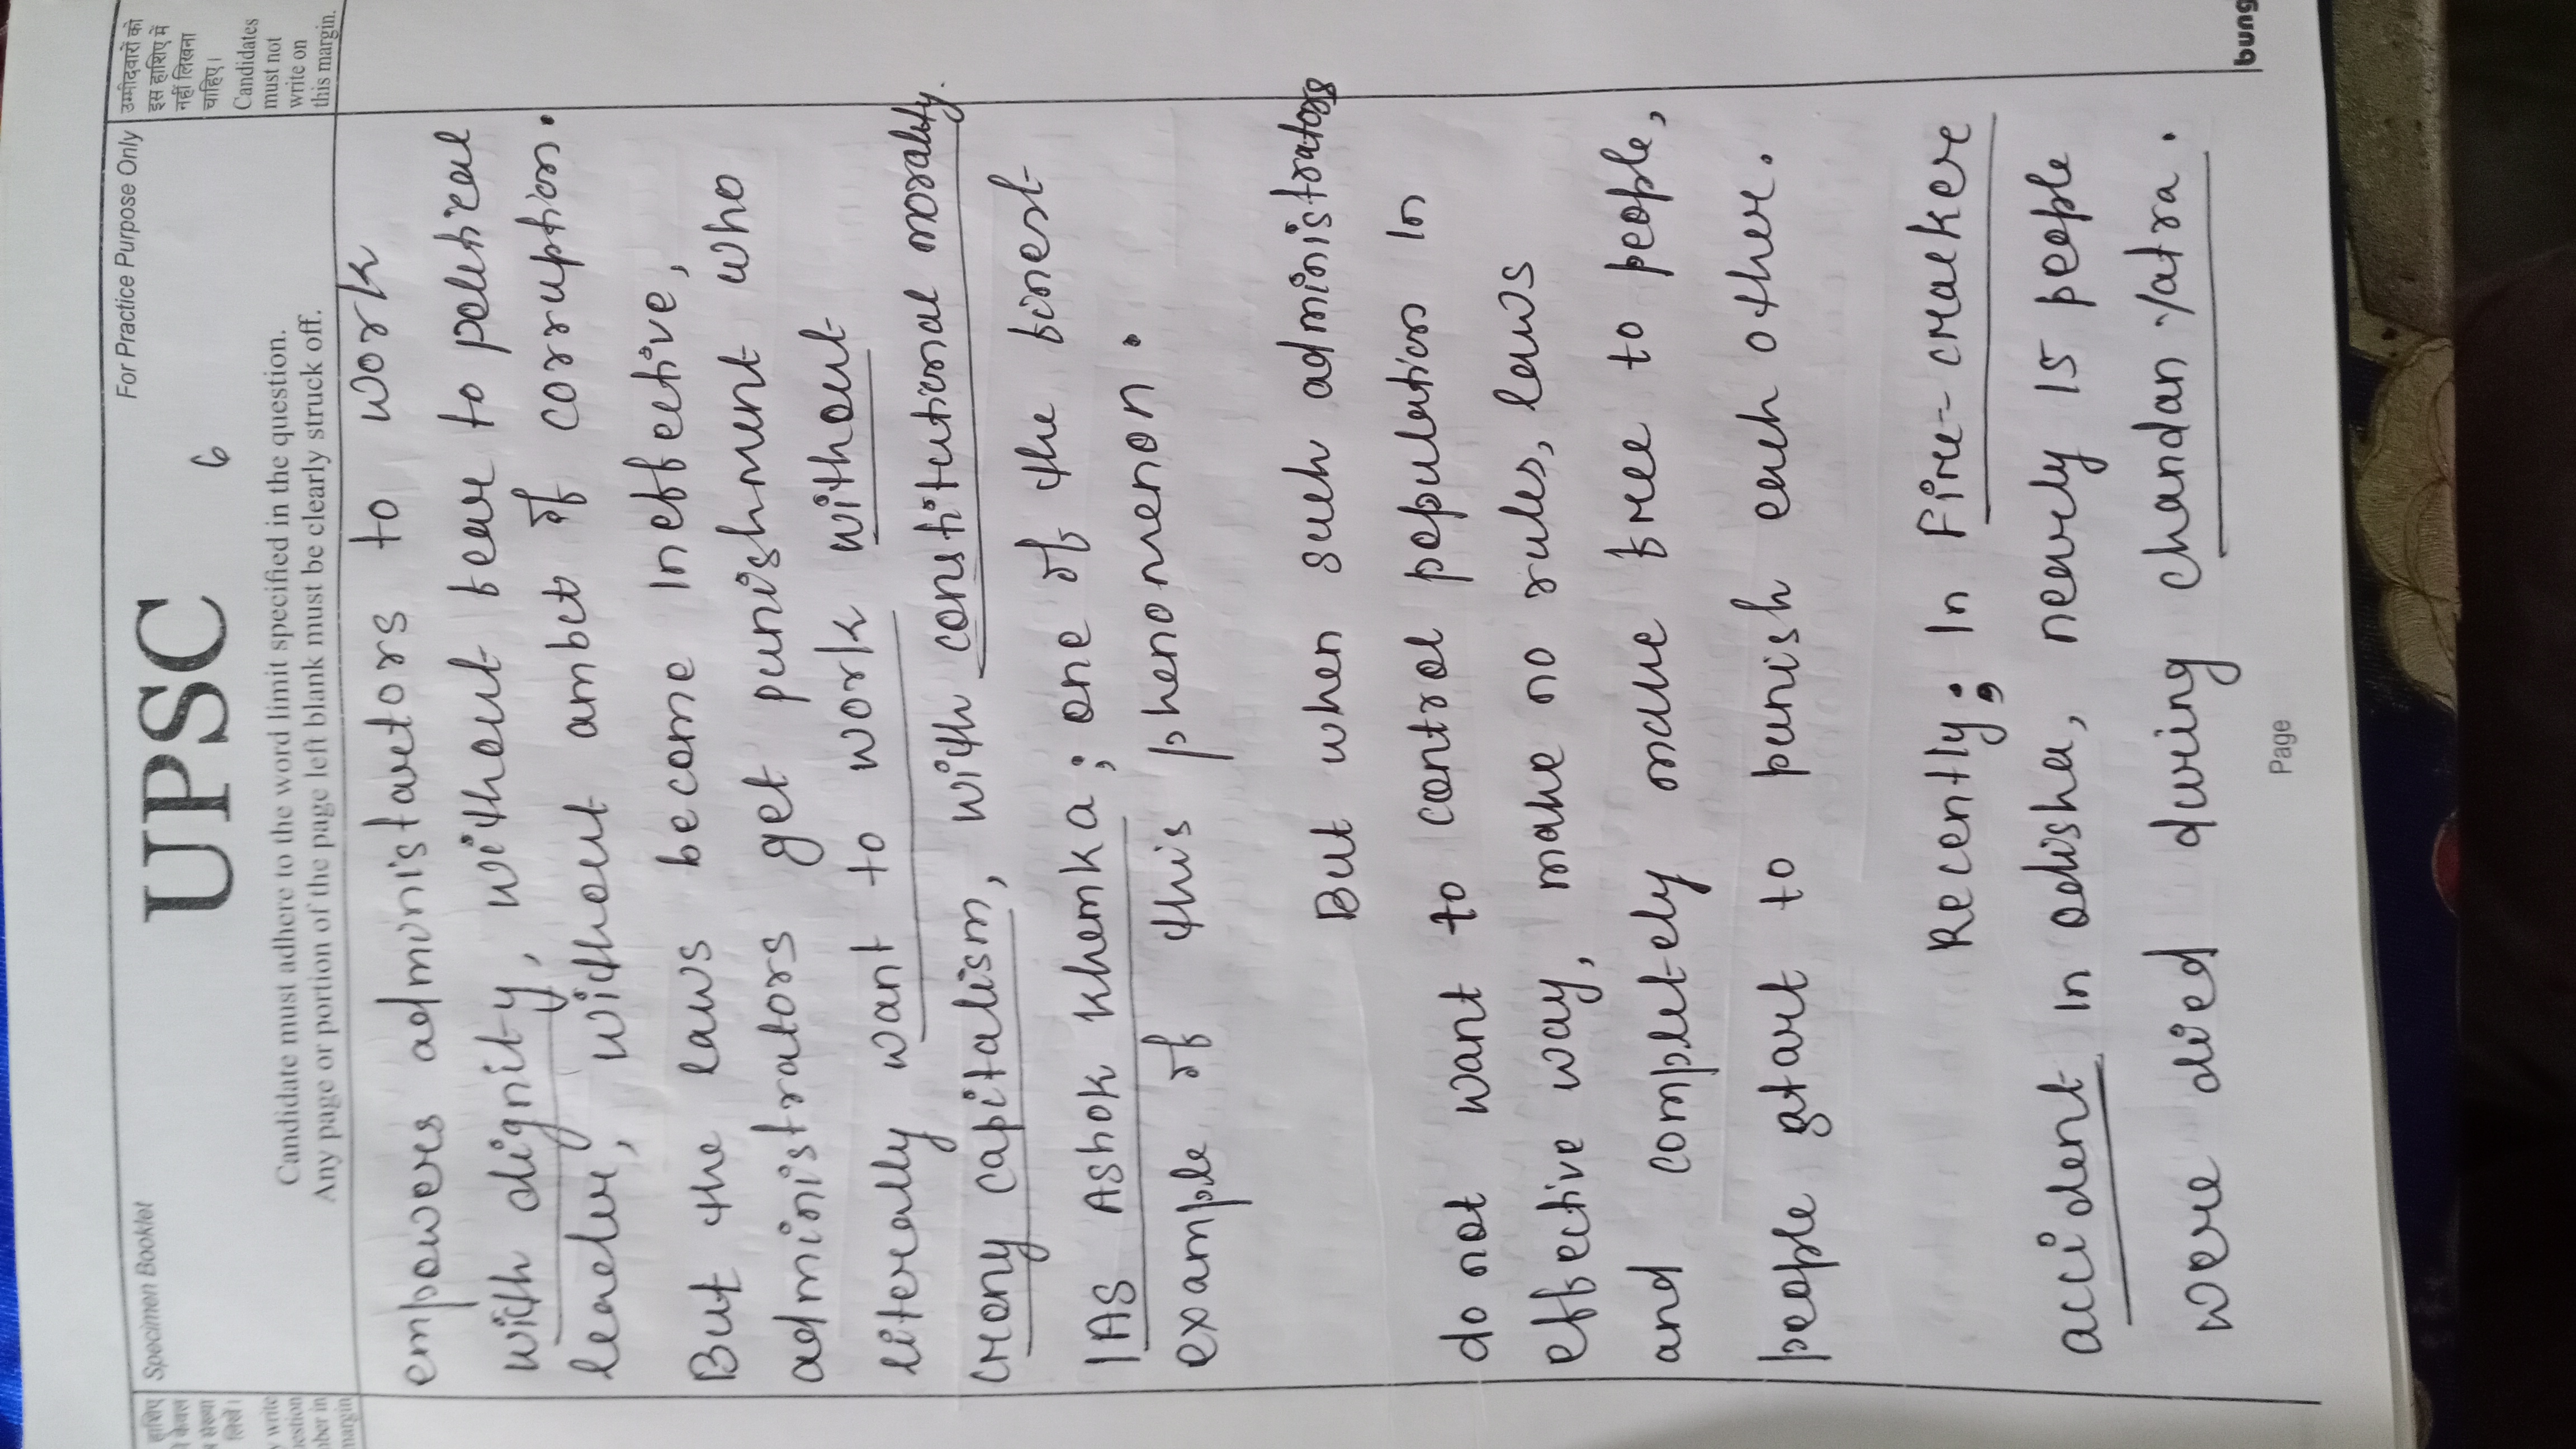 Specimen Booklet
For Practice Purpose Only
UPSC
6
Candidate must adhere to the word limit specified in the question.
Any page or portion of the page left blank must be clearly struck off.
उम्मीदवारों को
इस हाशिए में
नहीं लिखना
चाहिए।
Candidates
must not
write on
this margin.
empowers administartors to work
with dignity, without fear to political
leader, without ambit of corruption.
But the laws become ineffective,
administrators get punishment who
literally want to work without
crony capitalism, with constitutional morality.
IAS Ashok Khemka; one of the finest
example of this phenomenon.
But when such administrators
do not want to control population in
effective way, make no rules, laws
and completely make free to people,
people start to punish each other.
Recently; In Fire-cracker
accident in odisha, nearly 15 people
were died during chandan Yatra.
Page